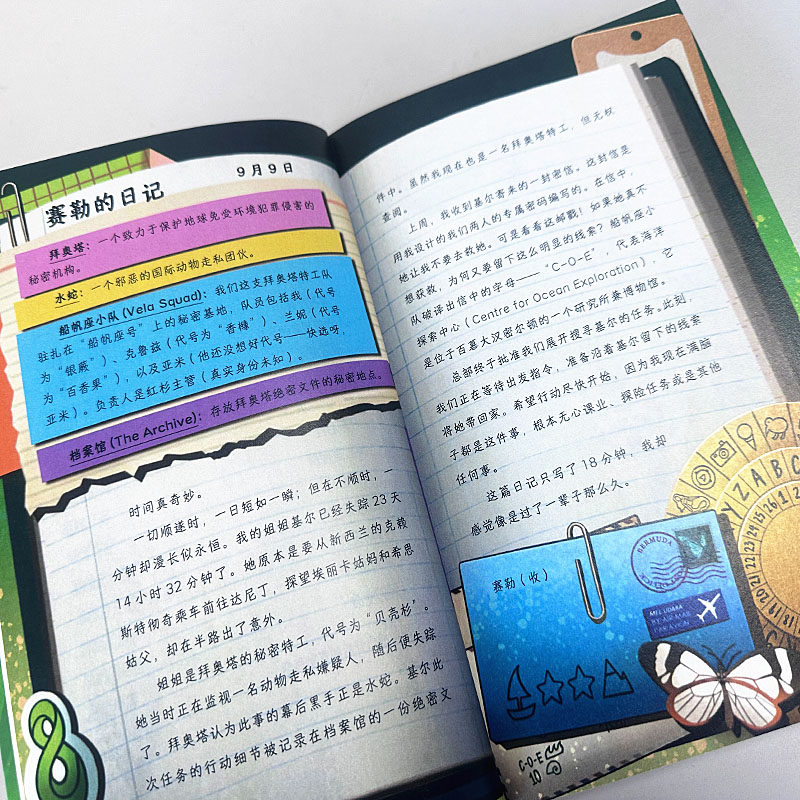 赛勒的日记
9月9日
拜奥塔：一个致力于保护地球免受环境犯罪侵害的
秘密机构。
水蛇：一个邪恶的国际动物走私团伙。
船帆座小队(Vela Squad)：我们这支拜奥塔特工队
驻扎在“船帆座号”上的秘密基地，队员包括我（代号
为“银蕨”）、克鲁兹（代号为“香橼”）、兰妮（代号
为“百香果”），以及亚米（他还没想好代号——快选呀，
亚米）。负责人是红杉主管（真实身份未知）。
档案馆(The Archive)：存放拜奥塔绝密文件的秘密地点。
时间真奇妙。
一切顺遂时，一日短如一瞬；但在不顺时，一
分钟却漫长似永恒。我的姐姐基尔已经失踪23天
14小时32分钟了。她原本是要从新西兰的克赖
斯特彻奇乘车前往达尼丁，探望埃丽卡姑妈和希恩
姑父，却在半路出了意外。
姐姐是拜奥塔的秘密特工，代号为“贝壳杉”。
她当时正在监视一名动物走私嫌疑人，随后便失踪
了。拜奥塔认为此事的幕后黑手正是水蛇。基尔此
次任务的行动细节被记录在档案馆的一份绝密文
件中。虽然我现在也是一名拜奥塔特工，但无权
查阅。
上周，我收到基尔寄来的一封密信。这封信是
用我设计的我们两人的专属密码编写的。在信中，
她让我不要去救她。可是看看这邮戳！如果她真不
想获救，为何又要留下这么明显的线索？船帆座小
队破译出信中的字母——“C-O-E”，代表海洋
探索中心(Centre for Ocean Exploration)，它
是位于百慕大汉密尔顿的一个研究所兼博物馆。
总部终于批准我们展开搜寻基尔的任务。此刻，
我们正在等待出发指令，准备沿着基尔留下的线索
将她带回家。希望行动尽快开始，因为我现在满脑
子都是这件事，根本无心课业、探险任务或是其他
任何事。
这篇日记只写了18分钟，我却
感觉像是过了一辈子那么久。
赛勒（收）
BERMUDA
BY AIR MAIL
PAR AVION
C-O-E
10
Y Z A B C
8